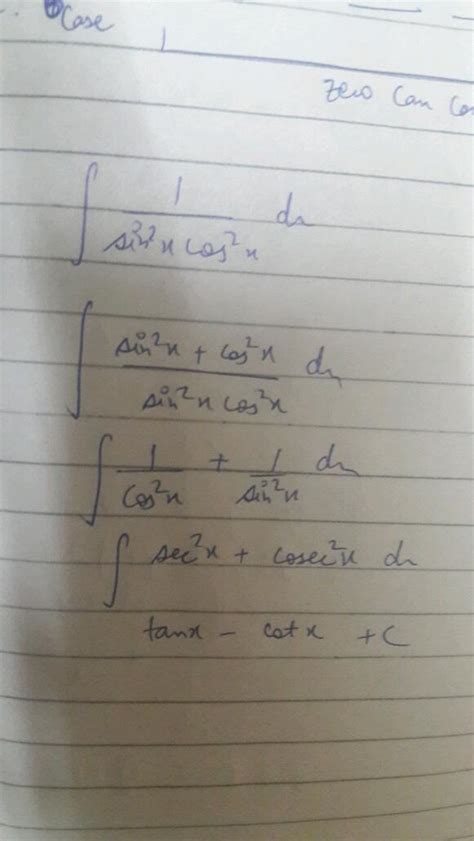 Case 1
Zero Can
∫ 1/(sin²x cos²x) dx
∫ (sin²x + cos²x)/(sin²x cos²x) dx
∫ 1/cos²x + 1/sin²x dx
∫ sec²x + cosec²x dx
tanx - cotx + C